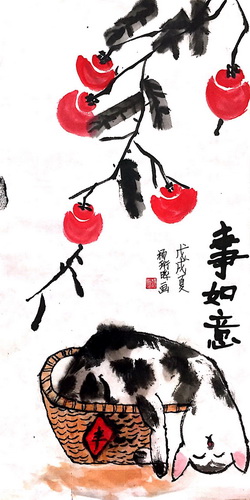 事如意
戊戌夏
杨画